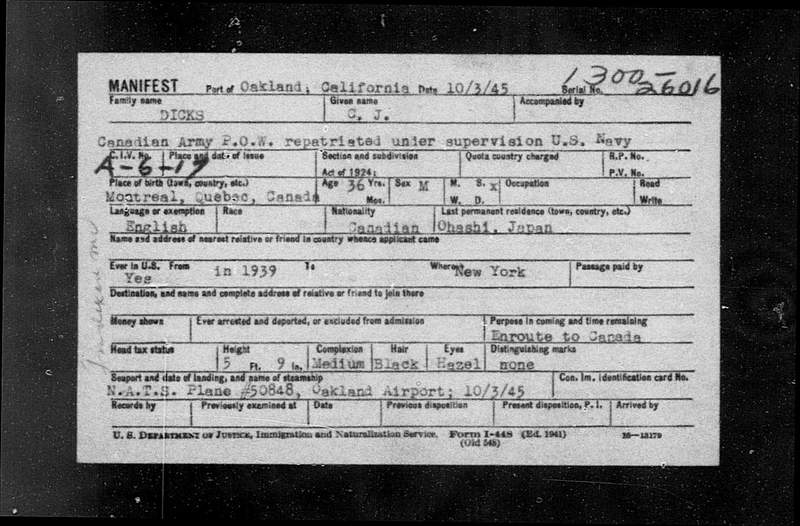 MANIFEST Port of Oakland, California Date 10/3/45 Serial No. 1300-26016
Family name Given name Accompanied by
DICKS C. J.
Canadian Army P.O.W. repatriated under supervision U.S. Navy
C.I.V. No. Place and date of issue Section and subdivision Quota country charged R.P. No.
A-6-17 Act of 1924: P.V. No.
Place of birth (town, country, etc.) Age 36 Yrs. Sex M M. S. x Occupation Read
Montreal, Quebec, Canada Mos. W. D. Write
Language or exemption Race Nationality Last permanent residence (town, country, etc.)
English Canadian Ohashi, Japan
Name and address of nearest relative or friend in country whence applicant came
Ever in U.S. From in 1939 To Where New York Passage paid by
Yes
Destination, and name and complete address of relative or friend to join there
Money shown Ever arrested and deported, or excluded from admission Purpose in coming and time remaining
Enroute to Canada
Head tax status Height Complexion Hair Eyes Distinguishing marks
5 Ft. 9 In. Medium Black Hazel none
Seaport and date of landing, and name of steamship Con. Im. Identification card No.
N.A.T.S. Plane #50848, Oakland Airport; 10/3/45
Records by Previously examined at Date Previous disposition Present disposition, P. I. Arrived by
U. S. DEPARTMENT OF JUSTICE, Immigration and Naturalization Service. Form I-448 (Ed. 1941) 16—13179
(Old 548)